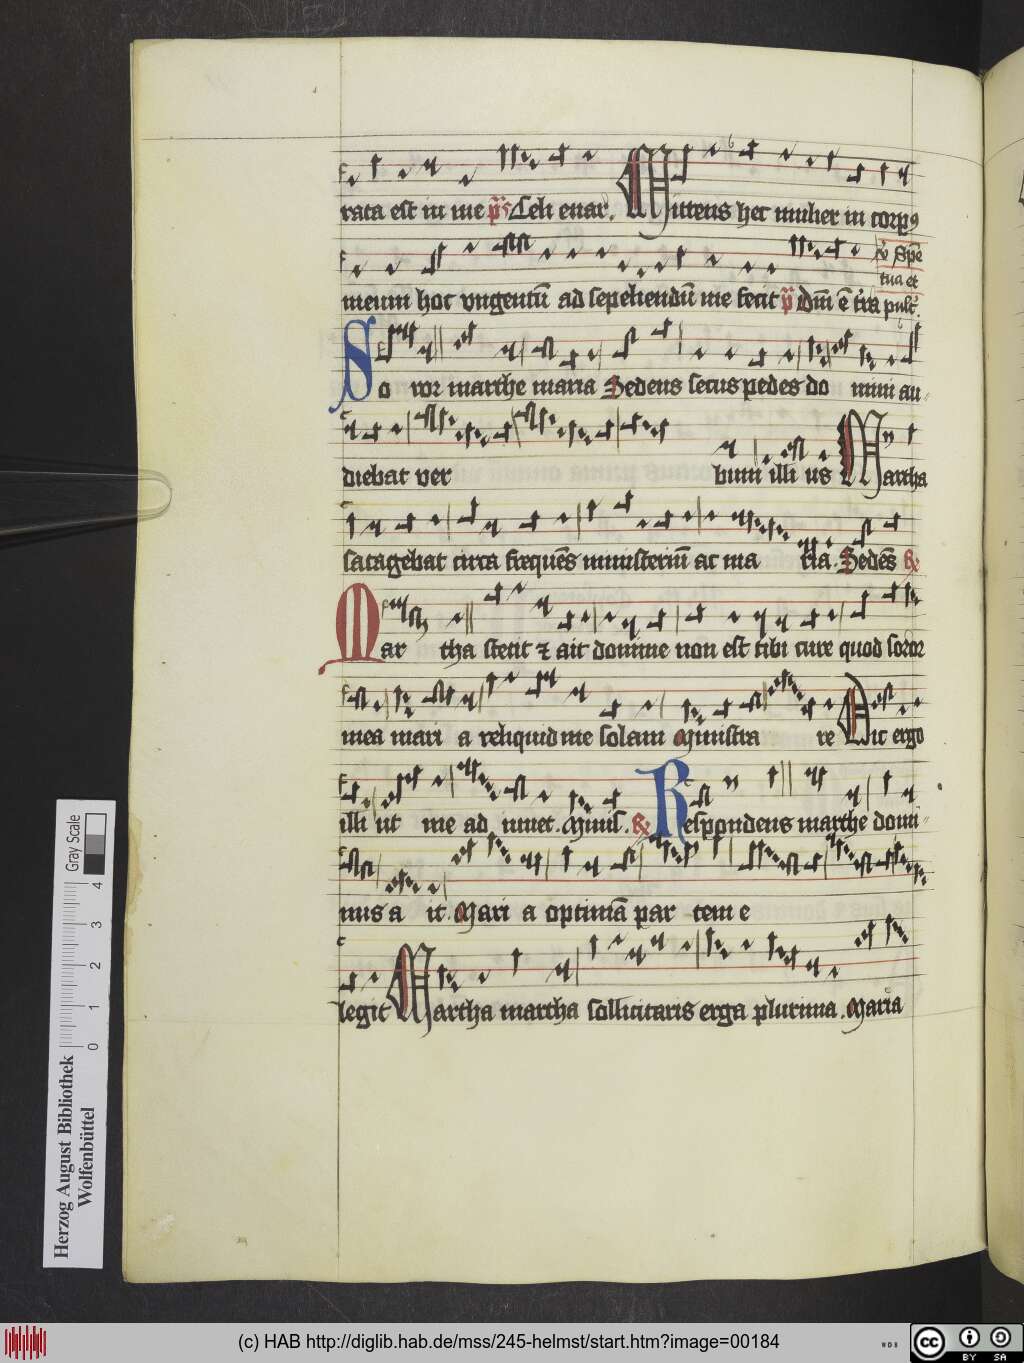 rata est in me ps Celi enar. Mittens hec mulier in corp9
meum hoc vngentū ad sepeliendū me fecit p dm̄ ē tr̄a ℣ Spē
tua et
pulc̄.
So ror marthe maria Sedens secus pedes do mini au-
diebat ver bum illi us Martha
satagebat circa frequēs ministeriū ac ma ria. Sedēs R
Mar tha stetit & ait domine non est tibi cure quod soror
mea mari a reliquid me solam Ministra re Dic ergo
illi ut me ad iuuet. Minis. R Respondens marthe domi-
nus a it. Mari a optimā par tem e
legit Martha martha sollicitaris erga plurima. Maria
Herzog August Bibliothek
Wolfenbüttel
Gray Scale
0 1 2 3 4
(c) HAB http://diglib.hab.de/mss/245-helmst/start.htm?image=00184
WDB
cc
BY SA